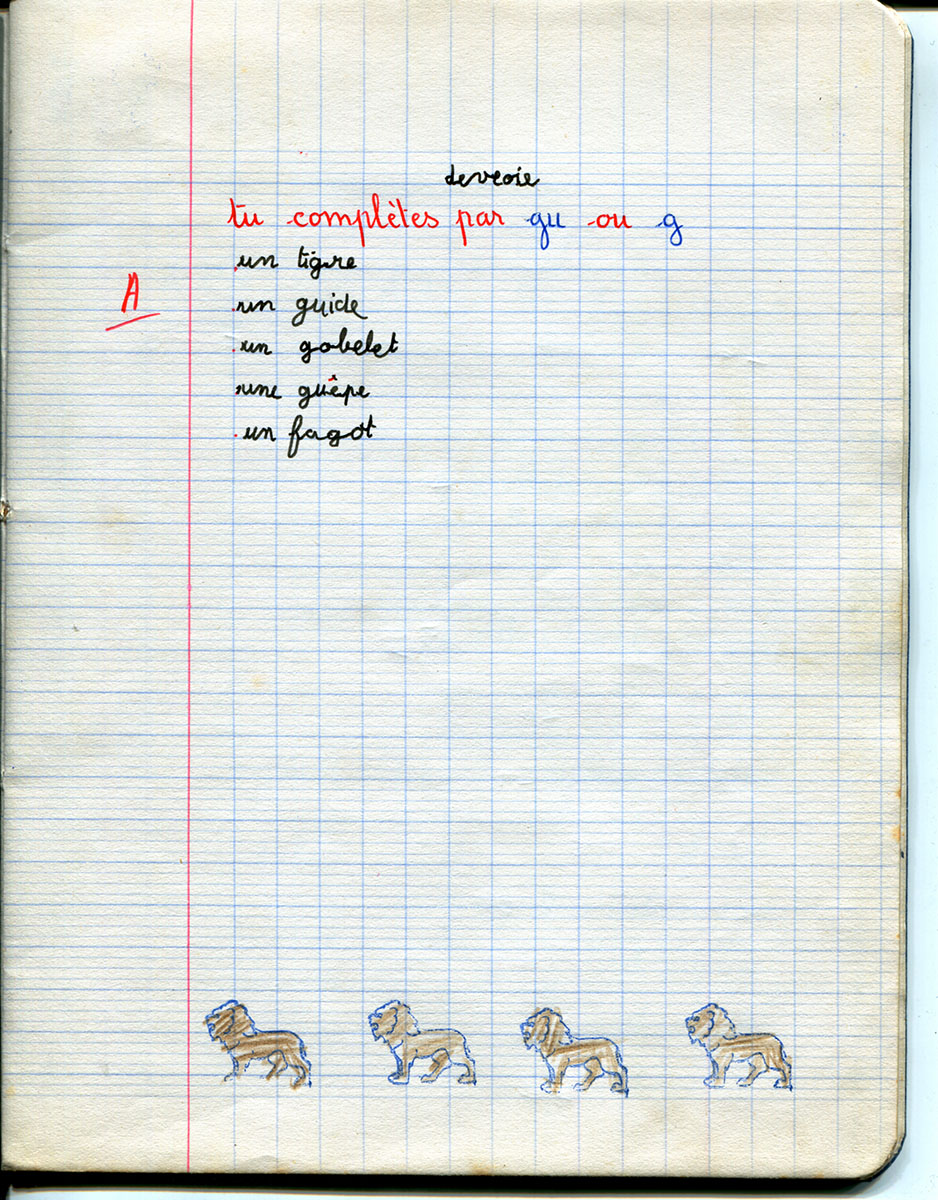 devroie
tu complètes par gu ou g
A
un tigre
un guide
un gobelet
une guêpe
un fagot